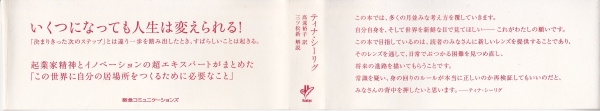 いくつになっても人生は変えられる!
「決まりきった次のステップ」とは違う一歩を踏み出したとき、すばらしいことは起きる。
起業家精神とイノベーションの超エキスパートがまとめた
「この世界に自分の居場所をつくるために必要なこと」
阪急コミュニケーションズ
ティナ・シーリグ
高遠裕子 訳
三ツ松新 解説
この本では、多くの月並みな考え方を覆していきます。
自分自身を、そして世界を新鮮な目で見てほしい──これがわたしの願いです。
この本で目指しているのは、読者のみなさんに新しいレンズを提供することであり、
そのレンズを通して、日常でぶつかる困難を見つめ直し、
将来の進路を描いてもらうことです。
常識を疑い、身の回りのルールが本当に正しいのか再検証してもいいのだと、
みなさんの背中を押したいと思います。──ティナ・シーリグ